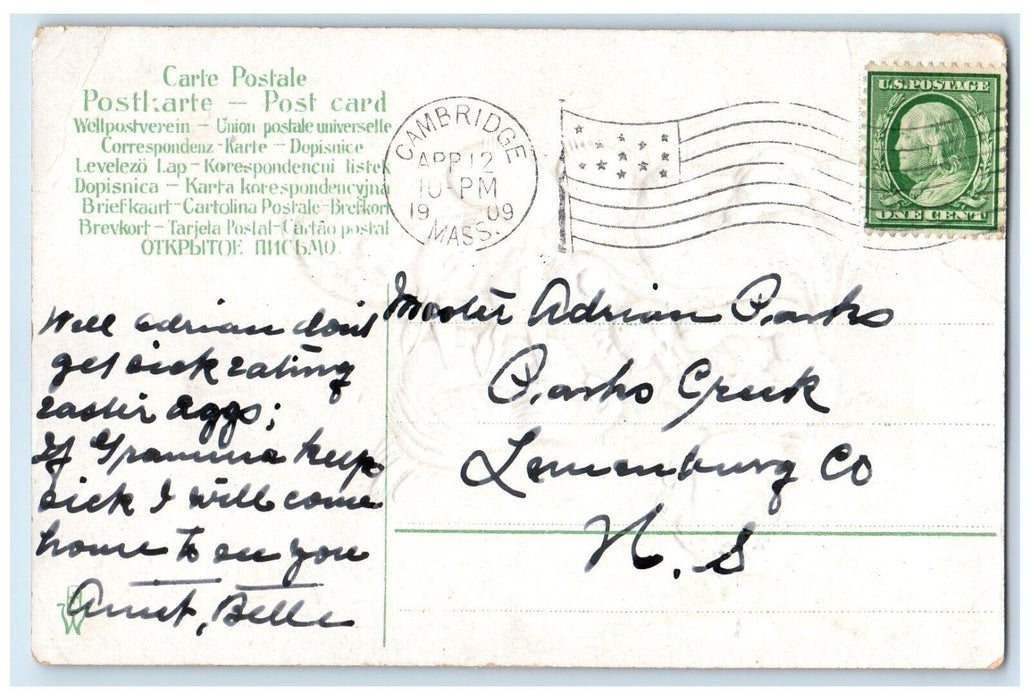 Carte Postale
Postkarte — Post card
Weltpostverein — Union postale universelle
Correspondenz-Karte — Dopisnice
Levelező Lap — Korespondencni listek
Dopisnica — Karta korespondencyjna
Briefkaart-Cartolina Postale-Brefkort
Brevkort — Tarjeta Postal-Cartão postal
ОТКРЫТОЕ ПИСЬМО.
CAMBRIDGE
APR 12
10-PM
19 09
MASS.
U.S. POSTAGE
ONE CENT
Master Adrian Parks
Parks Creek
Lunenburg Co
N. S
Well Adrian dont
get sick eating
easter eggs;
If Gramma keeps
sick I will come
home to see you
Aunt, Belle